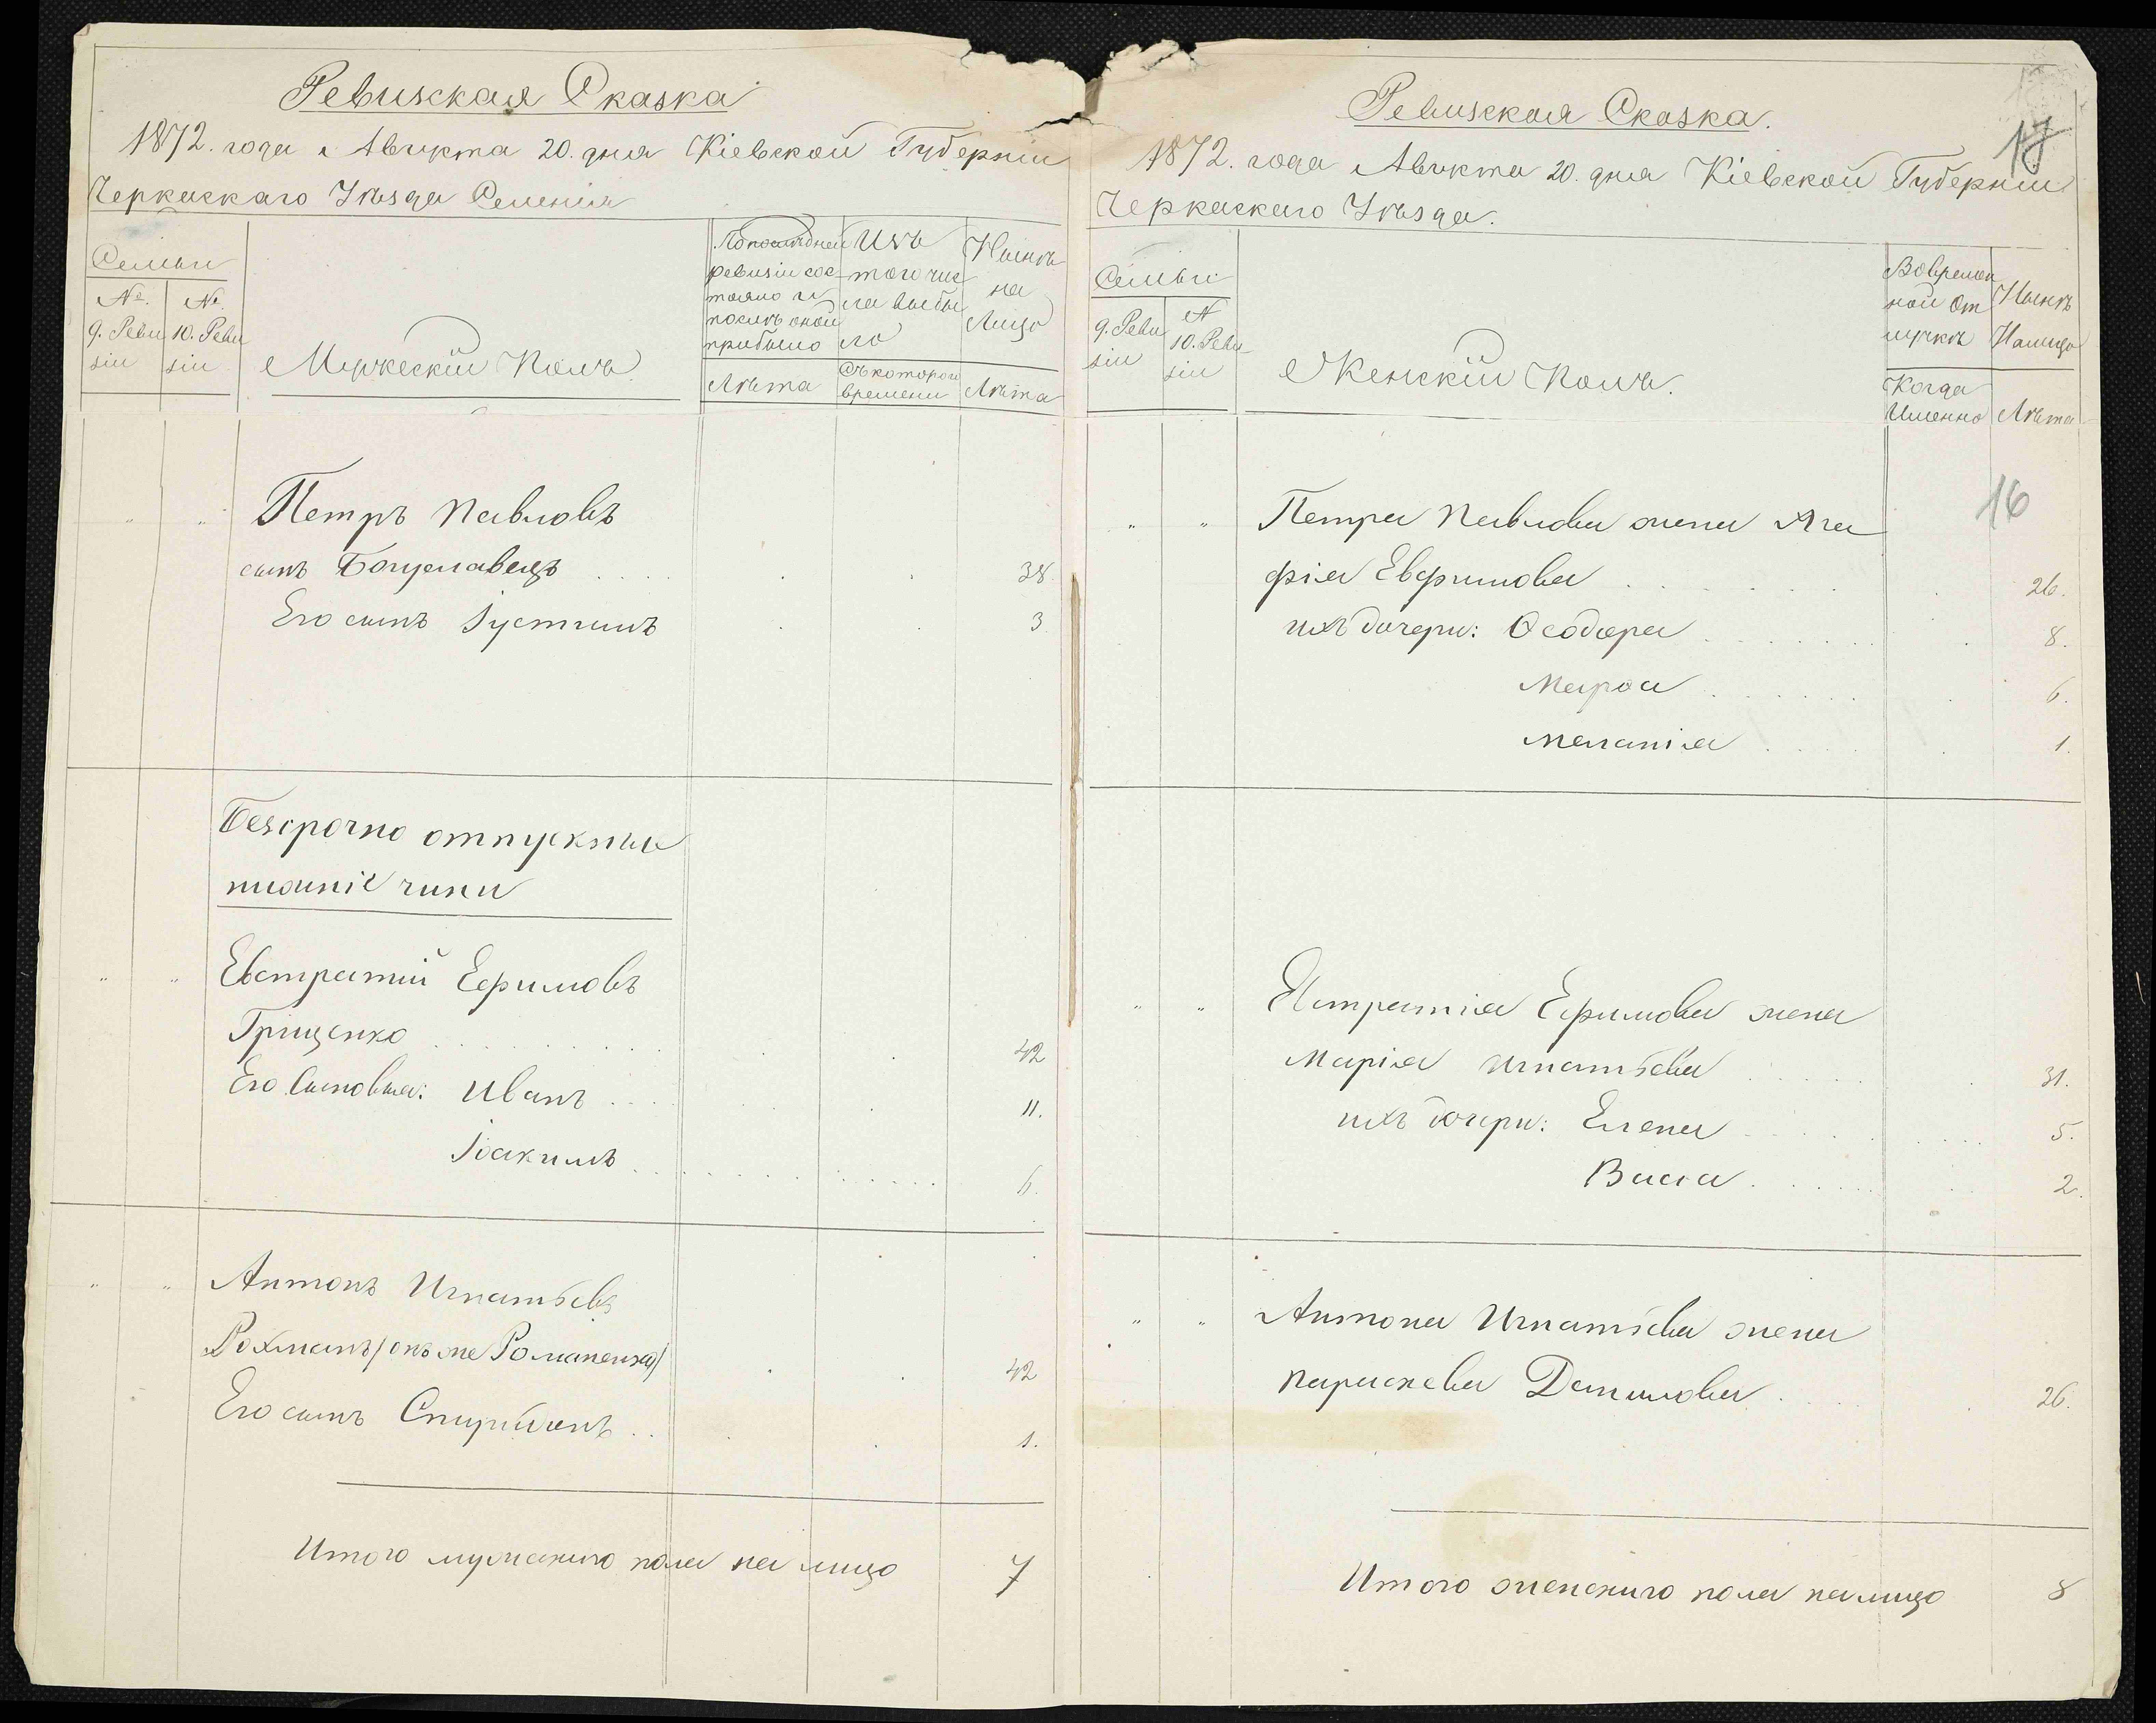 Ревизская Сказка
1872. года Августа 20. дня Кіевской Губерніи
Черкаскаго Уѣзда Селенія
Семьи
№. №.
9. Реви 10. Реви
зіи зіи
Мужескій Полъ
По последней
ревизіи сос
тояло и
послѣ оной
прибыло
Лѣта
Изъ
того чис
ла выбы
ло
Съ котораго
времени
Нынѣ
на
Лицо
Лѣта
Петръ Павловъ
сынъ Богуславецъ 38.
Его сынъ Іустинъ 3
Безсрочно отпускные
нижніе чины
Евстратій Ефимовъ
Грищенко 42
Его Сыновья: Иванъ 11.
Іоакимъ 6.
Антонъ Игнатьевъ
Рохманъ/онъ же Романенко/ 42
Его сынъ Спиридонъ 1.
Итого мужскаго пола на лицо 7
Ревизская Сказка.
17
1872. года Августа 20. дня Кіевской Губерніи
Черкаскаго Уѣзда.
Семьи
№
9. Реви 10. Реви
зіи зіи
Женскій Полъ.
Во времен
ной от
лучкѣ
Когда
Именно
Нынѣ
Налицо
Лѣта
16
Петра Павлова жена Ага
фія Ефимова 26.
ихъ дочери: Ѳеодора 8.
Марѳа 6.
Меланія 1.
Евстратія Ефимова жена
Марія Игнатьева 31.
ихъ дочери: Елена 5.
Васса 2.
Антона Игнатьева жена
Параскева Данилова 26.
Итого женскаго пола налицо 8